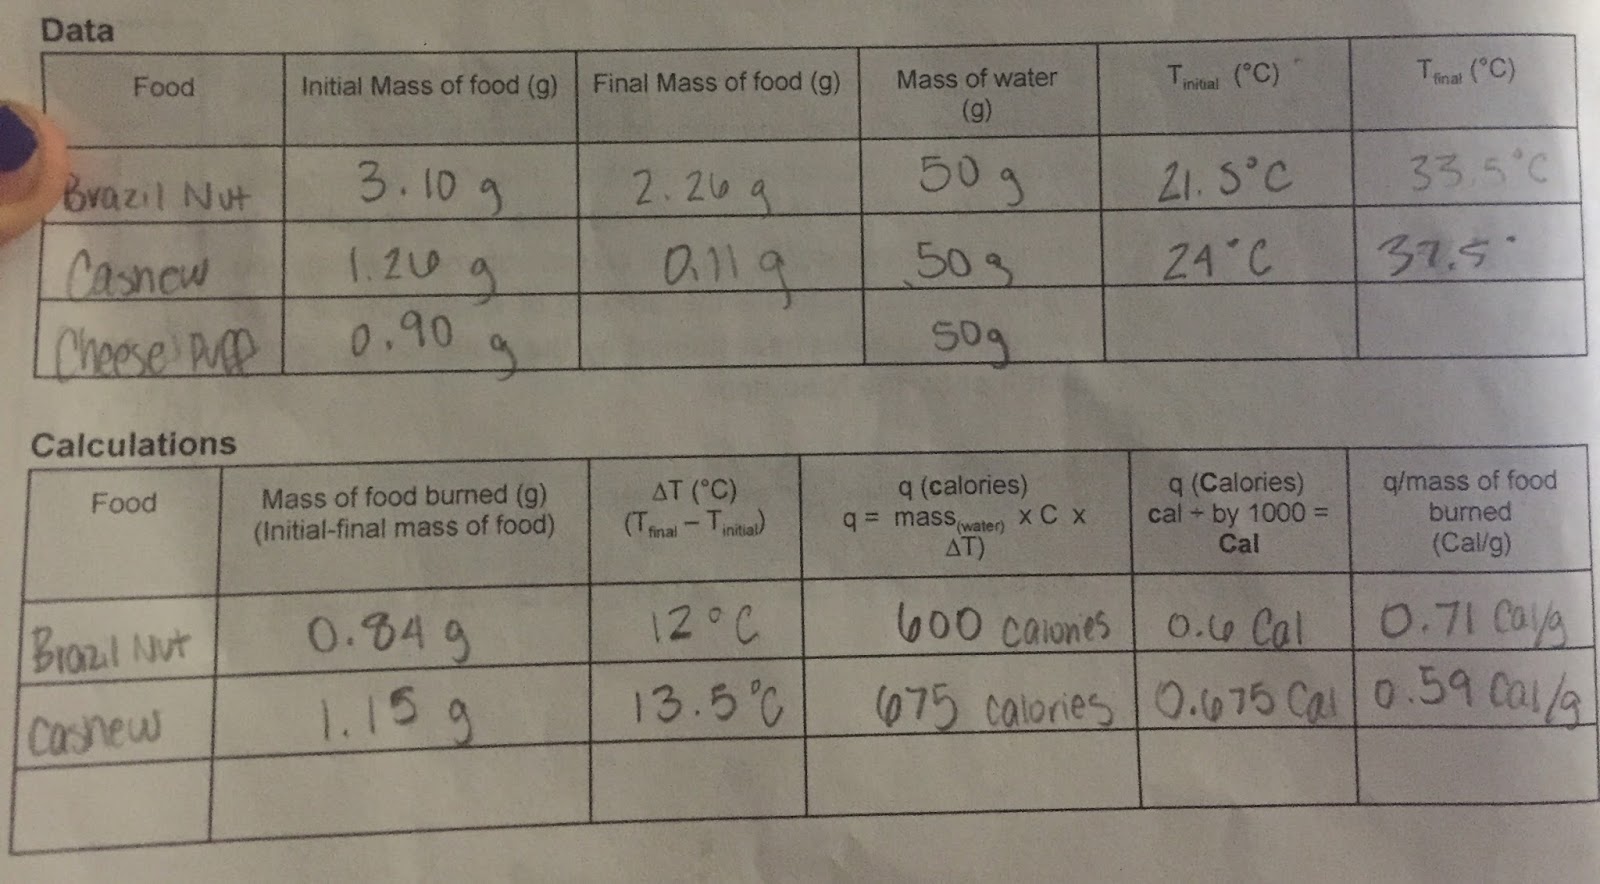 Data
Food Initial Mass of food (g) Final Mass of food (g) Mass of water (g) Tinitial (°C) Tfinal (°C)
Brazil Nut 3.10 g 2.26 g 50 g 21.5°C 33.5°C
Cashew 1.26 g 0.11 g 50 g 24°C 37.5°
Cheese Puff 0.90 g 50g
Calculations
Food Mass of food burned (g) (Initial-final mass of food) ΔT (°C) (Tfinal – Tinitial) q (calories) q = mass(water) x C x ΔT) q (Calories) cal ÷ by 1000 = Cal q/mass of food burned (Cal/g)
Brazil Nut 0.84 g 12°C 600 calories 0.6 Cal 0.71 Cal/g
Cashew 1.15 g 13.5°C 675 calories 0.675 Cal 0.59 Cal/g